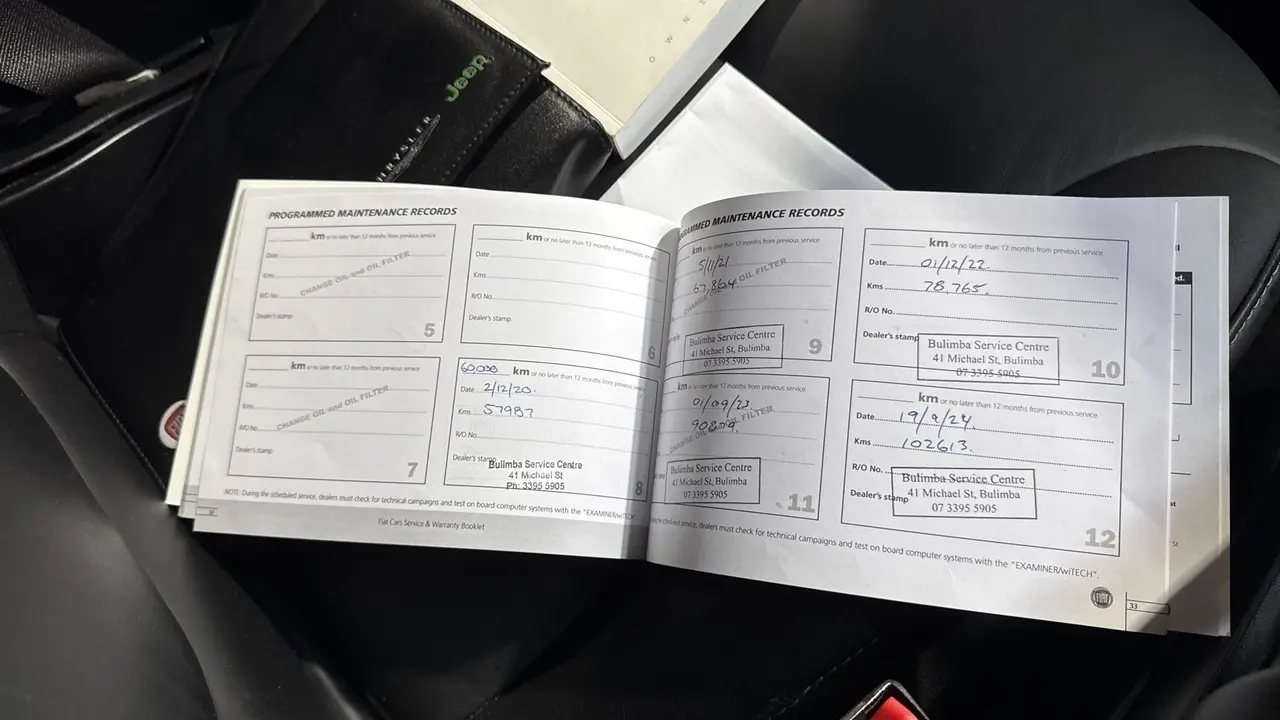 OWNE
Jeep
HRYSLER
PROGRAMMED MAINTENANCE RECORDS
km or no later than 12 months from previous service
Date
Kms
CHANGE OIL and OIL FILTER
R/O No.
Dealer's stamp
5
km or no later than 12 months from previous service
Date
Kms
R/O No.
Dealer's stamp
6
km or no later than 12 months from previous service
Date
Kms
CHANGE OIL and OIL FILTER
R/O No.
Dealer's stamp
7
60,000 km or no later than 12 months from previous service
Date 2/12/20.
Kms 57987
R/O No.
Dealer's stamp
Bulimba Service Centre
41 Michael St
Ph: 3395 5905
8
NOTE: During the scheduled service, dealers must check for technical campaigns and test on board computer systems with the "EXAMINER/wiTECH
32
Fiat Cars Service & Warranty Booklet
RAMMED MAINTENANCE RECORDS
km or no later than 12 months from previous service
5/11/21
67,864
CHANGE OIL and OIL FILTER
Bulimba Service Centre
41 Michael St, Bulimba
07 3395 5905
9
km or no later than 12 months from previous service
Date 01/12/22.
Kms 78,765.
R/O No.
Dealer's stamp
Bulimba Service Centre
41 Michael St, Bulimba
07 3395 5905
10
km or no later than 12 months from previous service
01/09/23
CHANGE OIL and OIL FILTER
Bulimba Service Centre
41 Michael St, Bulimba
07 3395 5905
11
km or no later than 12 months from previous service
Date 19/9/24.
Kms 102613.
R/O No.
Dealer's stamp
Bulimba Service Centre
41 Michael St, Bulimba
07 3395 5905
12
scheduled service, dealers must check for technical campaigns and test on board computer systems with the "EXAMINER/wiTECH".
FIAT
33